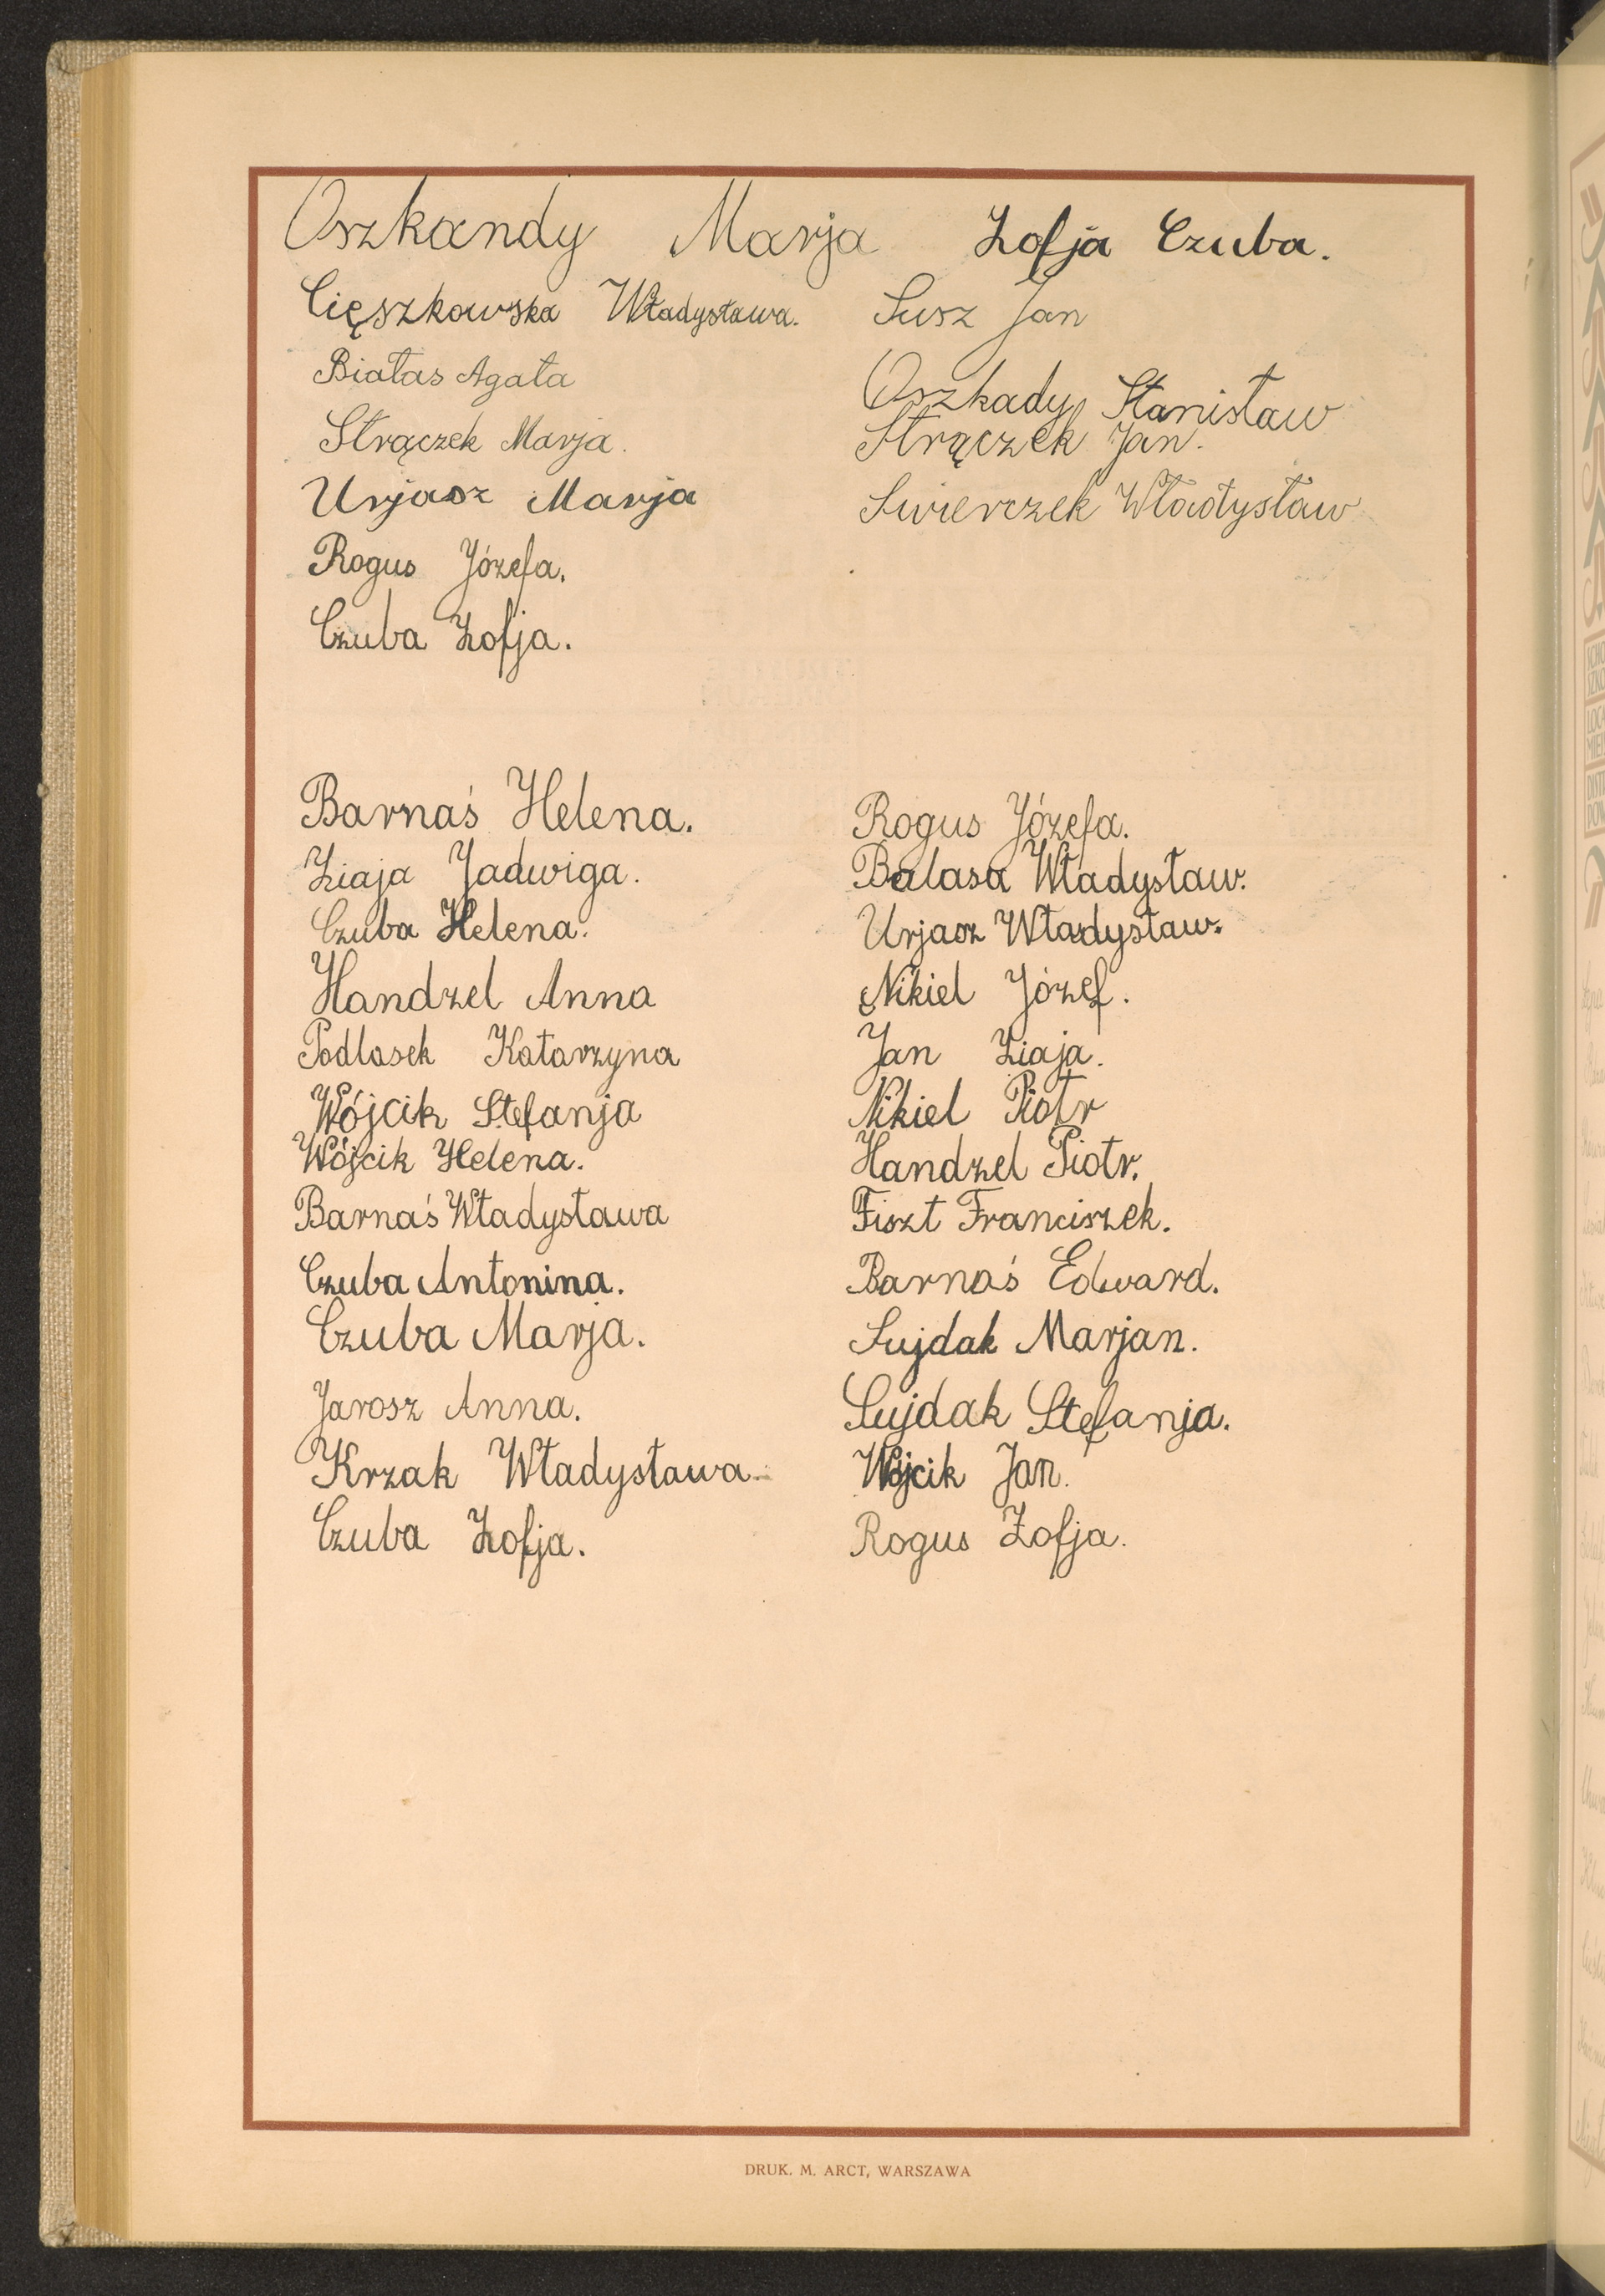 Oszkandy Marja
Zofja Czuba.
Cięszkowska Władysława.
Białas Agata
Strączek Marja.
Urjasz Marja
Rogus Józefa.
Czuba Zofja.
Susz Jan
Oszkady Stanisław
Strączek Jan.
Swierczek Władysław
Barnaś Helena.
Ziaja Jadwiga.
Czuba Helena.
Handzel Anna
Podlasek Katarzyna
Wójcik Stefanja
Wójcik Helena.
Barnaś Władysława
Czuba Antonina.
Czuba Marja.
Jarosz Anna.
Krzak Władysława.
Czuba Zofja.
Rogus Józefa.
Balasa Władysław.
Urjasz Władysław.
Nikiel Józef.
Jan Ziaja.
Nikiel Piotr
Handzel Piotr.
Fiszt Franciszek.
Barnaś Edward.
Sujdak Marjan.
Sujdak Stefanja.
Wójcik Jan.
Rogus Zofja.
DRUK. M. ARCT, WARSZAWA